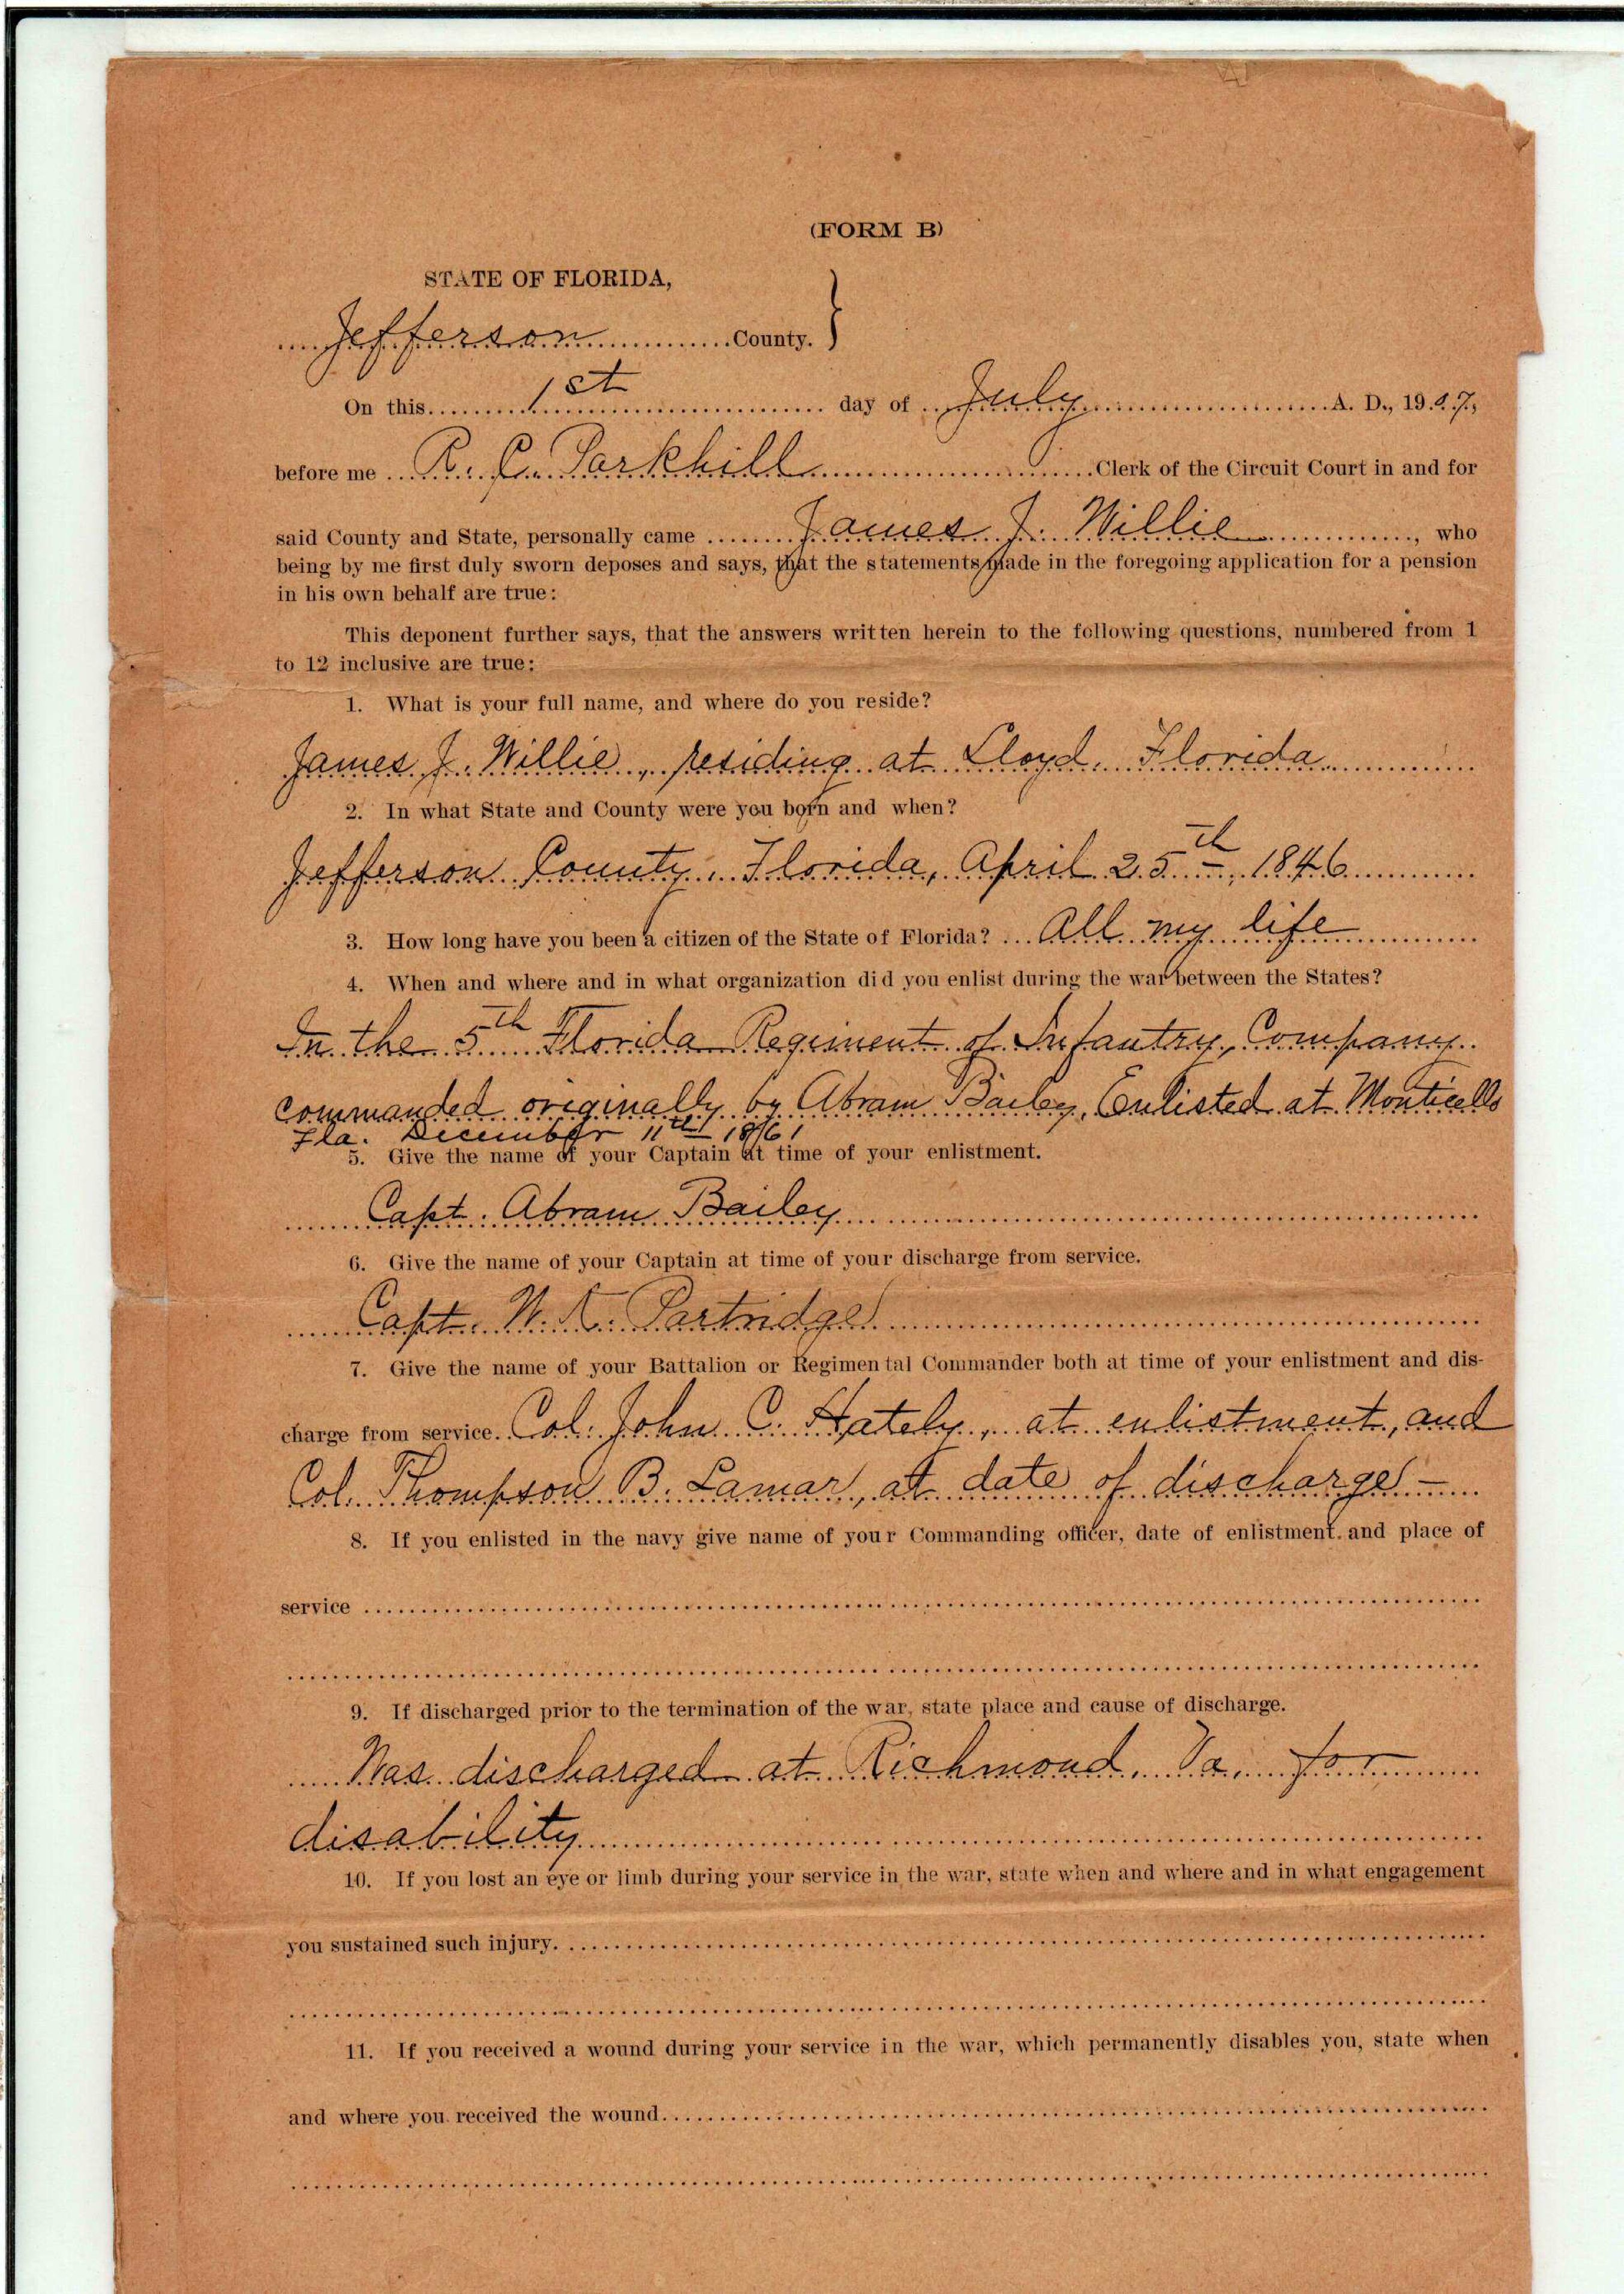 (FORM B)
STATE OF FLORIDA,
Jefferson County. }
On this 1st day of July A. D., 1907,
before me R. C. Parkhill Clerk of the Circuit Court in and for
said County and State, personally came James J. Willie, who
being by me first duly sworn deposes and says, that the statements made in the foregoing application for a pension
in his own behalf are true:
This deponent further says, that the answers written herein to the following questions, numbered from 1
to 12 inclusive are true:
1. What is your full name, and where do you reside?
James J. Willie, residing at Lloyd, Florida
2. In what State and County were you born and when?
Jefferson County, Florida, April 25th, 1846
3. How long have you been a citizen of the State of Florida? All my life
4. When and where and in what organization did you enlist during the war between the States?
In the 5th Florida Regiment of Infantry, Company
commanded originally by Abram Bailey, Enlisted at Monticello
Fla. December 11th 1861
5. Give the name of your Captain at time of your enlistment.
Capt. Abram Bailey
6. Give the name of your Captain at time of your discharge from service.
Capt. Partridge
7. Give the name of your Battalion or Regimental Commander both at time of your enlistment and dis-
charge from service. Col. John C. Hately, at enlistment, and
Col. Thompson B. Lamar, at date of discharge —
8. If you enlisted in the navy give name of your Commanding officer, date of enlistment. and place of
service
9. If discharged prior to the termination of the war, state place and cause of discharge.
Was discharged at Richmond, Va, for
disability
10. If you lost an eye or limb during your service in the war, state when and where and in what engagement
you sustained such injury.
11. If you received a wound during your service in the war, which permanently disables you, state when
and where you received the wound